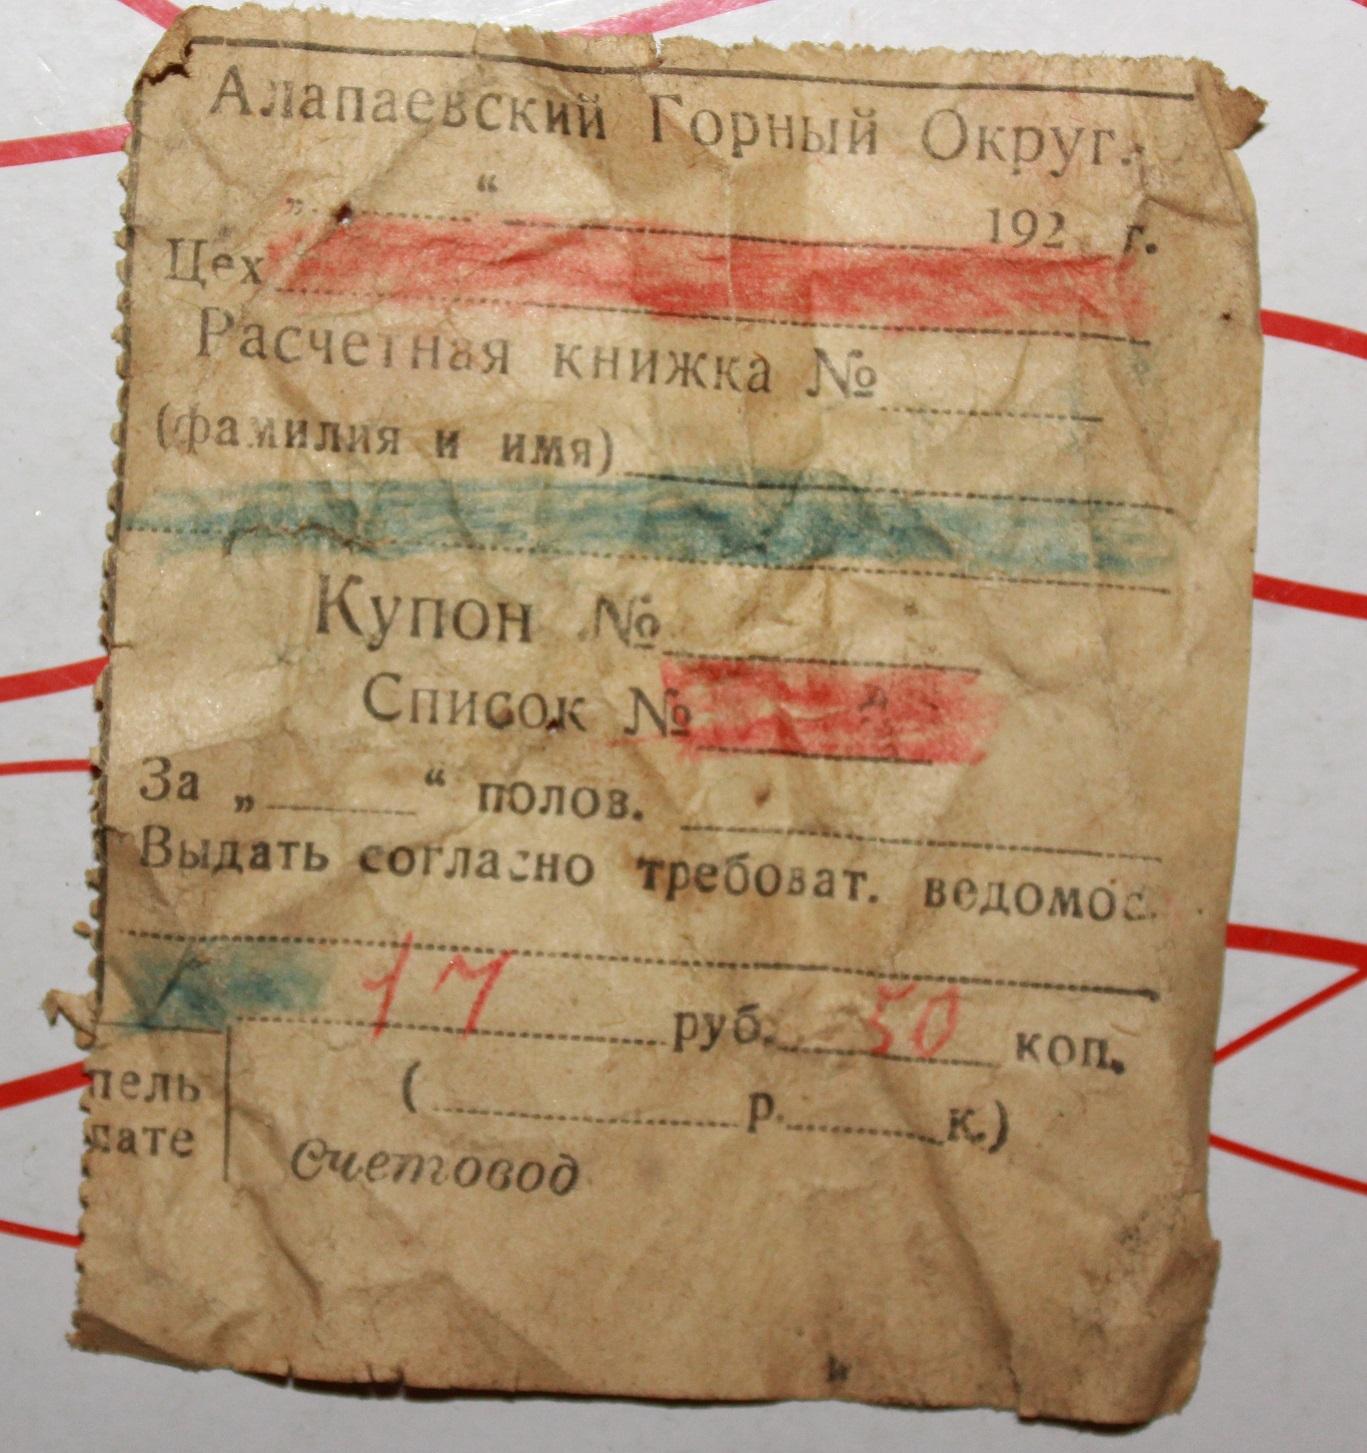 Алапаевский Горный Округ.
„ “ 192 г.
Цех
Расчетная книжка №
(фамилия и имя)
Купон №
Список №
За „ “ полов.
Выдать согласно требоват. ведомос.
17 руб. 50 коп.
пель ( р. к.)
лате
Счетовод